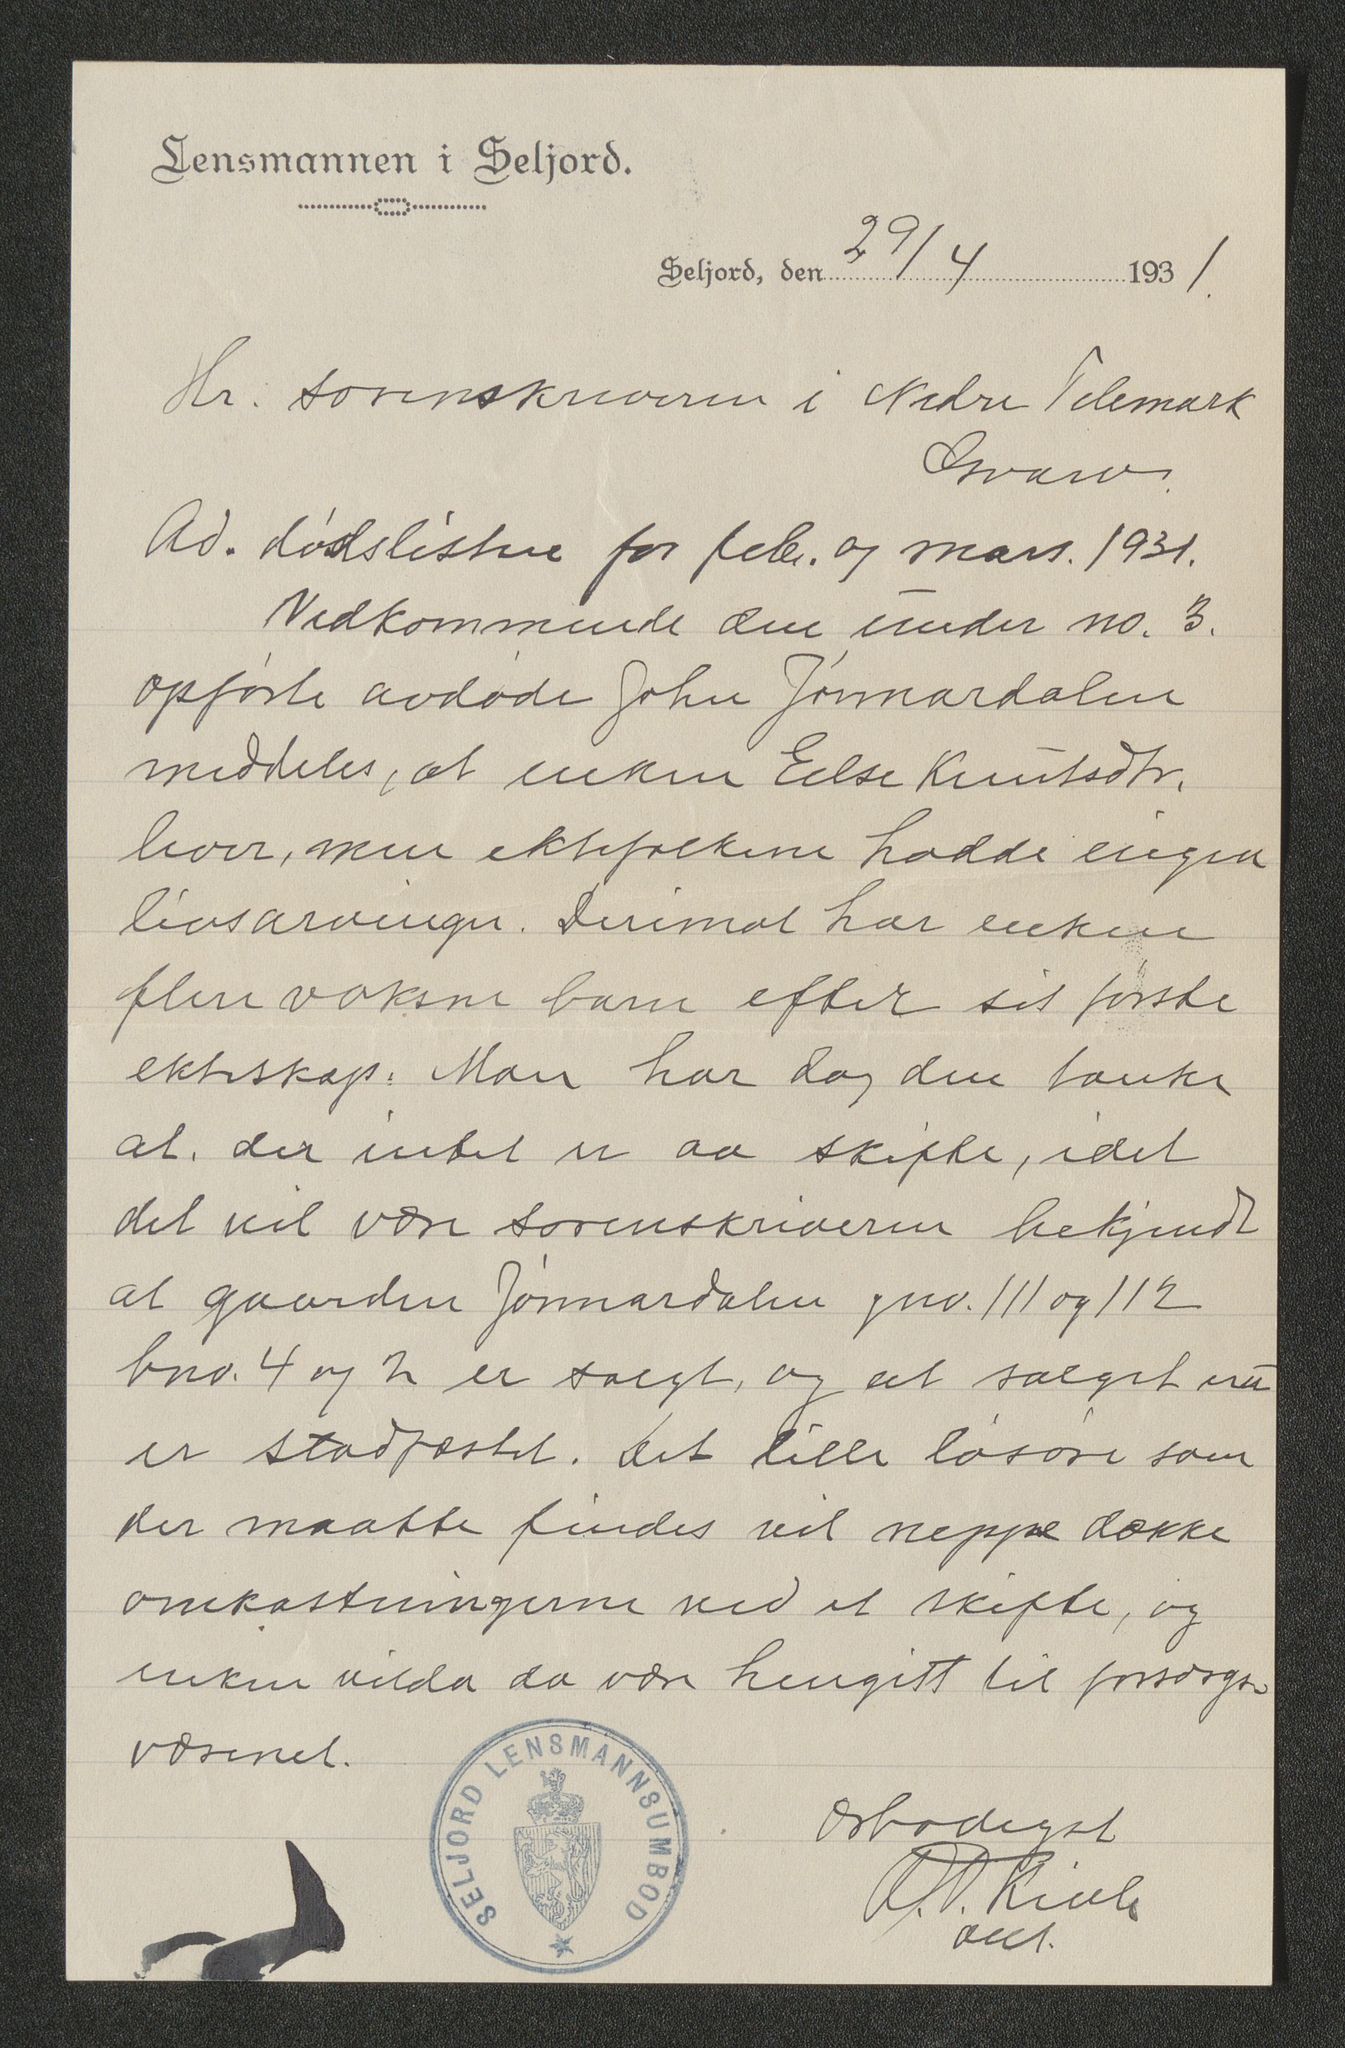 Lensmannen i Seljord.
Seljord, den 29/4 1931.
Hr. sorenskriveren i Nedre Telemark
Gvarv.
Ad. dødslistene for febr. og mars. 1931.
Vedkommende den under no. 3.
opførte avdøde John Jønnardalen
meddeles, at enken Else Knutsdtr.
lever, men ektefolkene hadde ingen
livsarvinger. Derimot har enken
flere voksne barn efter sit første
ekteskap. Man har dog den tanke
at. der intet er aa skifte, idet
det vil være sorenskriveren bekjendt
at gaarden Jønnardalen gno. 111 og 112
bno. 4 og 2 er solgt, og at salget nu
er stadfæstet. Det lille løsøre som
der maatte findes vil neppe dække
omkostningerne ved et skifte, og
enken vilda da være hengitt til forsorgs-
væsenet.
Ærbødigst
SELJORD LENSMANNSUMBOD